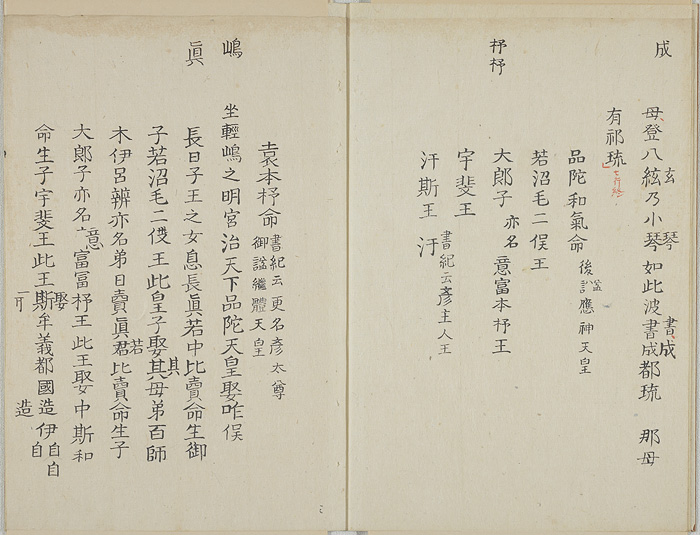 成
母登八絃乃小琴如此波書成都琉 那母
玄
琴
書成
有祁琉
品陀和氣命 後謚應神天皇
若沼毛二俣王
杼杼
大郎子 亦名意富本杼王
宇斐王
汙斯王 汙 書紀云彥主人王
袁本杼命 書紀云更名彥太尊
御謚繼體天皇
嶋
坐輕嶋之明宮治天下品陀天皇娶咋俣
眞
長日子王之女息長眞若中比賣命生御
子若沼毛二俣王此皇子娶其母弟百師
其
木伊呂辨亦名弟日賣眞若比賣命生子
若
大郎子亦名意富富杼王此王娶中斯和
命生子宇斐王此王娶牟義都國造伊自牟